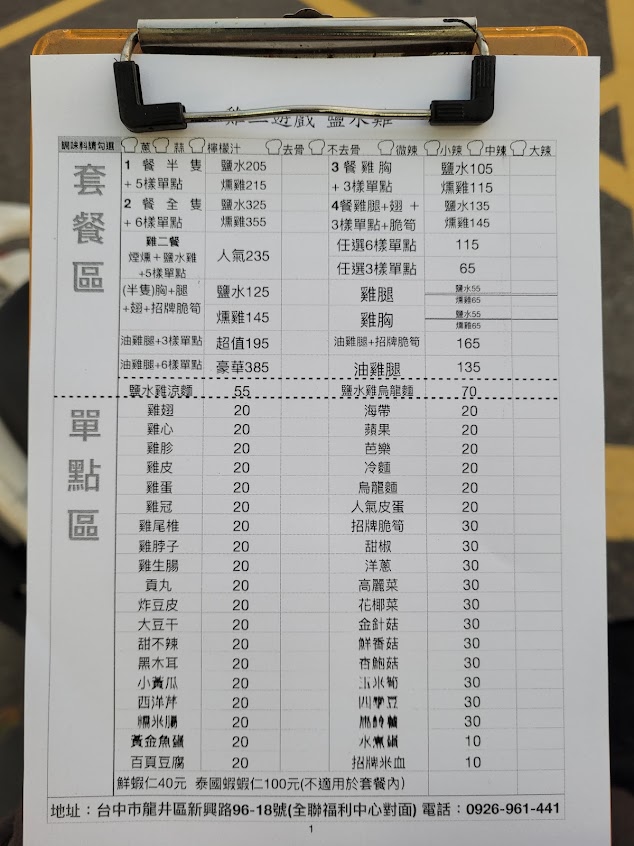 遊戲 鹽水雞
調味料請勾選 蔥 蒜 檸檬汁 去骨 不去骨 微辣 小辣 中辣 大辣
套餐區
1 餐半隻 鹽水205 3餐雞胸 鹽水105
+ 5樣單點 燻雞215 + 3樣單點 燻雞115
2 餐全隻 鹽水325 4餐雞腿+翅 + 鹽水135
+ 6樣單點 燻雞355 3樣單點+脆筍 燻雞145
雞二餐
煙燻＋鹽水雞 人氣235 任選6樣單點 115
+5樣單點 任選3樣單點 65
(半隻)胸+腿 鹽水125 雞腿 鹽水55
+翅+招牌脆筍 燻雞65
燻雞145 雞胸 鹽水55
燻雞65
油雞腿+3樣單點 超值195 油雞腿+招牌脆筍 165
油雞腿+6樣單點 豪華385 油雞腿 135
鹽水雞涼麵 55 鹽水雞烏龍麵 70
單點區
雞翅 20 海帶 20
雞心 20 蘋果 20
雞胗 20 芭樂 20
雞皮 20 冷麵 20
雞蛋 20 烏龍麵 20
雞冠 20 人氣皮蛋 20
雞尾椎 20 招牌脆筍 30
雞脖子 20 甜椒 30
雞生腸 20 洋蔥 30
貢丸 20 高麗菜 30
炸豆皮 20 花椰菜 30
大豆干 20 金針菇 30
甜不辣 20 鮮香菇 30
黑木耳 20 杏鮑菇 30
小黃瓜 20 玉米筍 30
西洋芹 20 四季豆 30
糯米腸 20 30
黃金魚蛋 20 水煮蛋 10
百頁豆腐 20 招牌米血 10
鮮蝦仁40元 泰國蝦蝦仁100元(不適用於套餐內)
地址：台中市龍井區新興路96-18號(全聯福利中心對面) 電話：0926-961-441
1